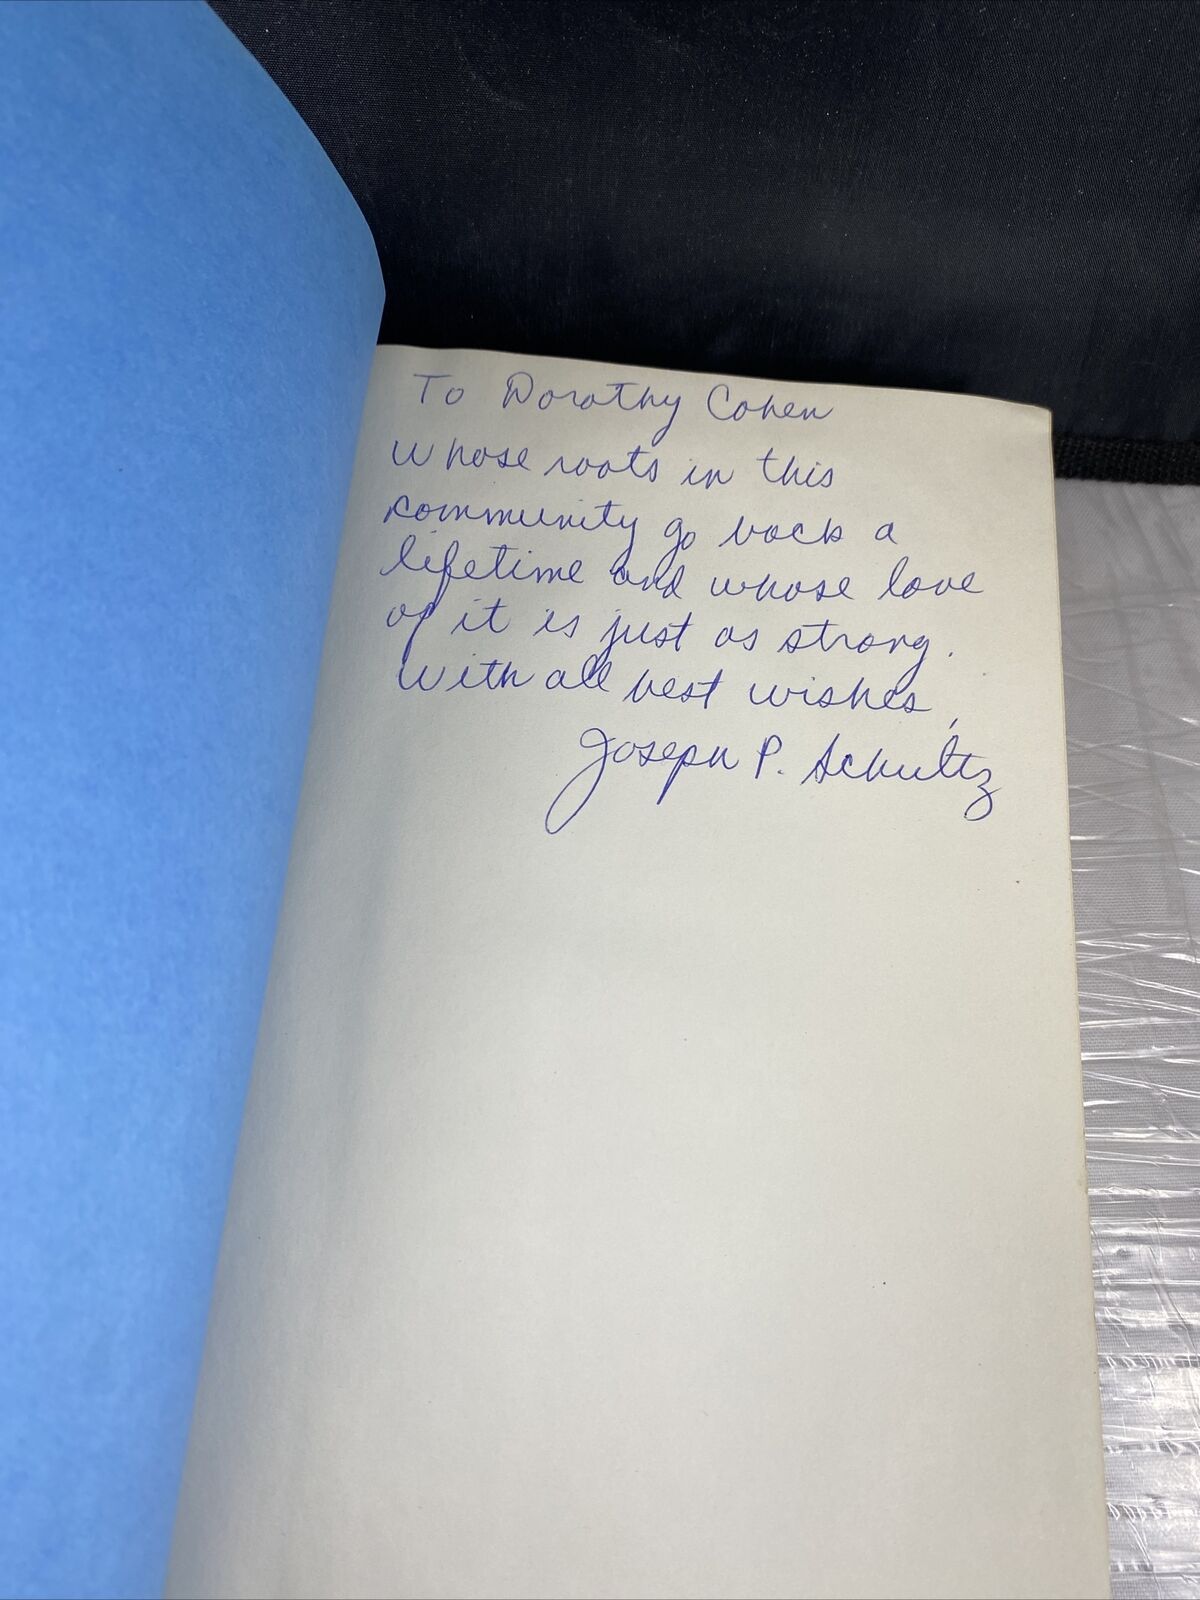 To Dorothy Cohen
whose roots in this
community go back a
lifetime and whose love
of it is just as strong.
With all best wishes,
Joseph P. Schultz